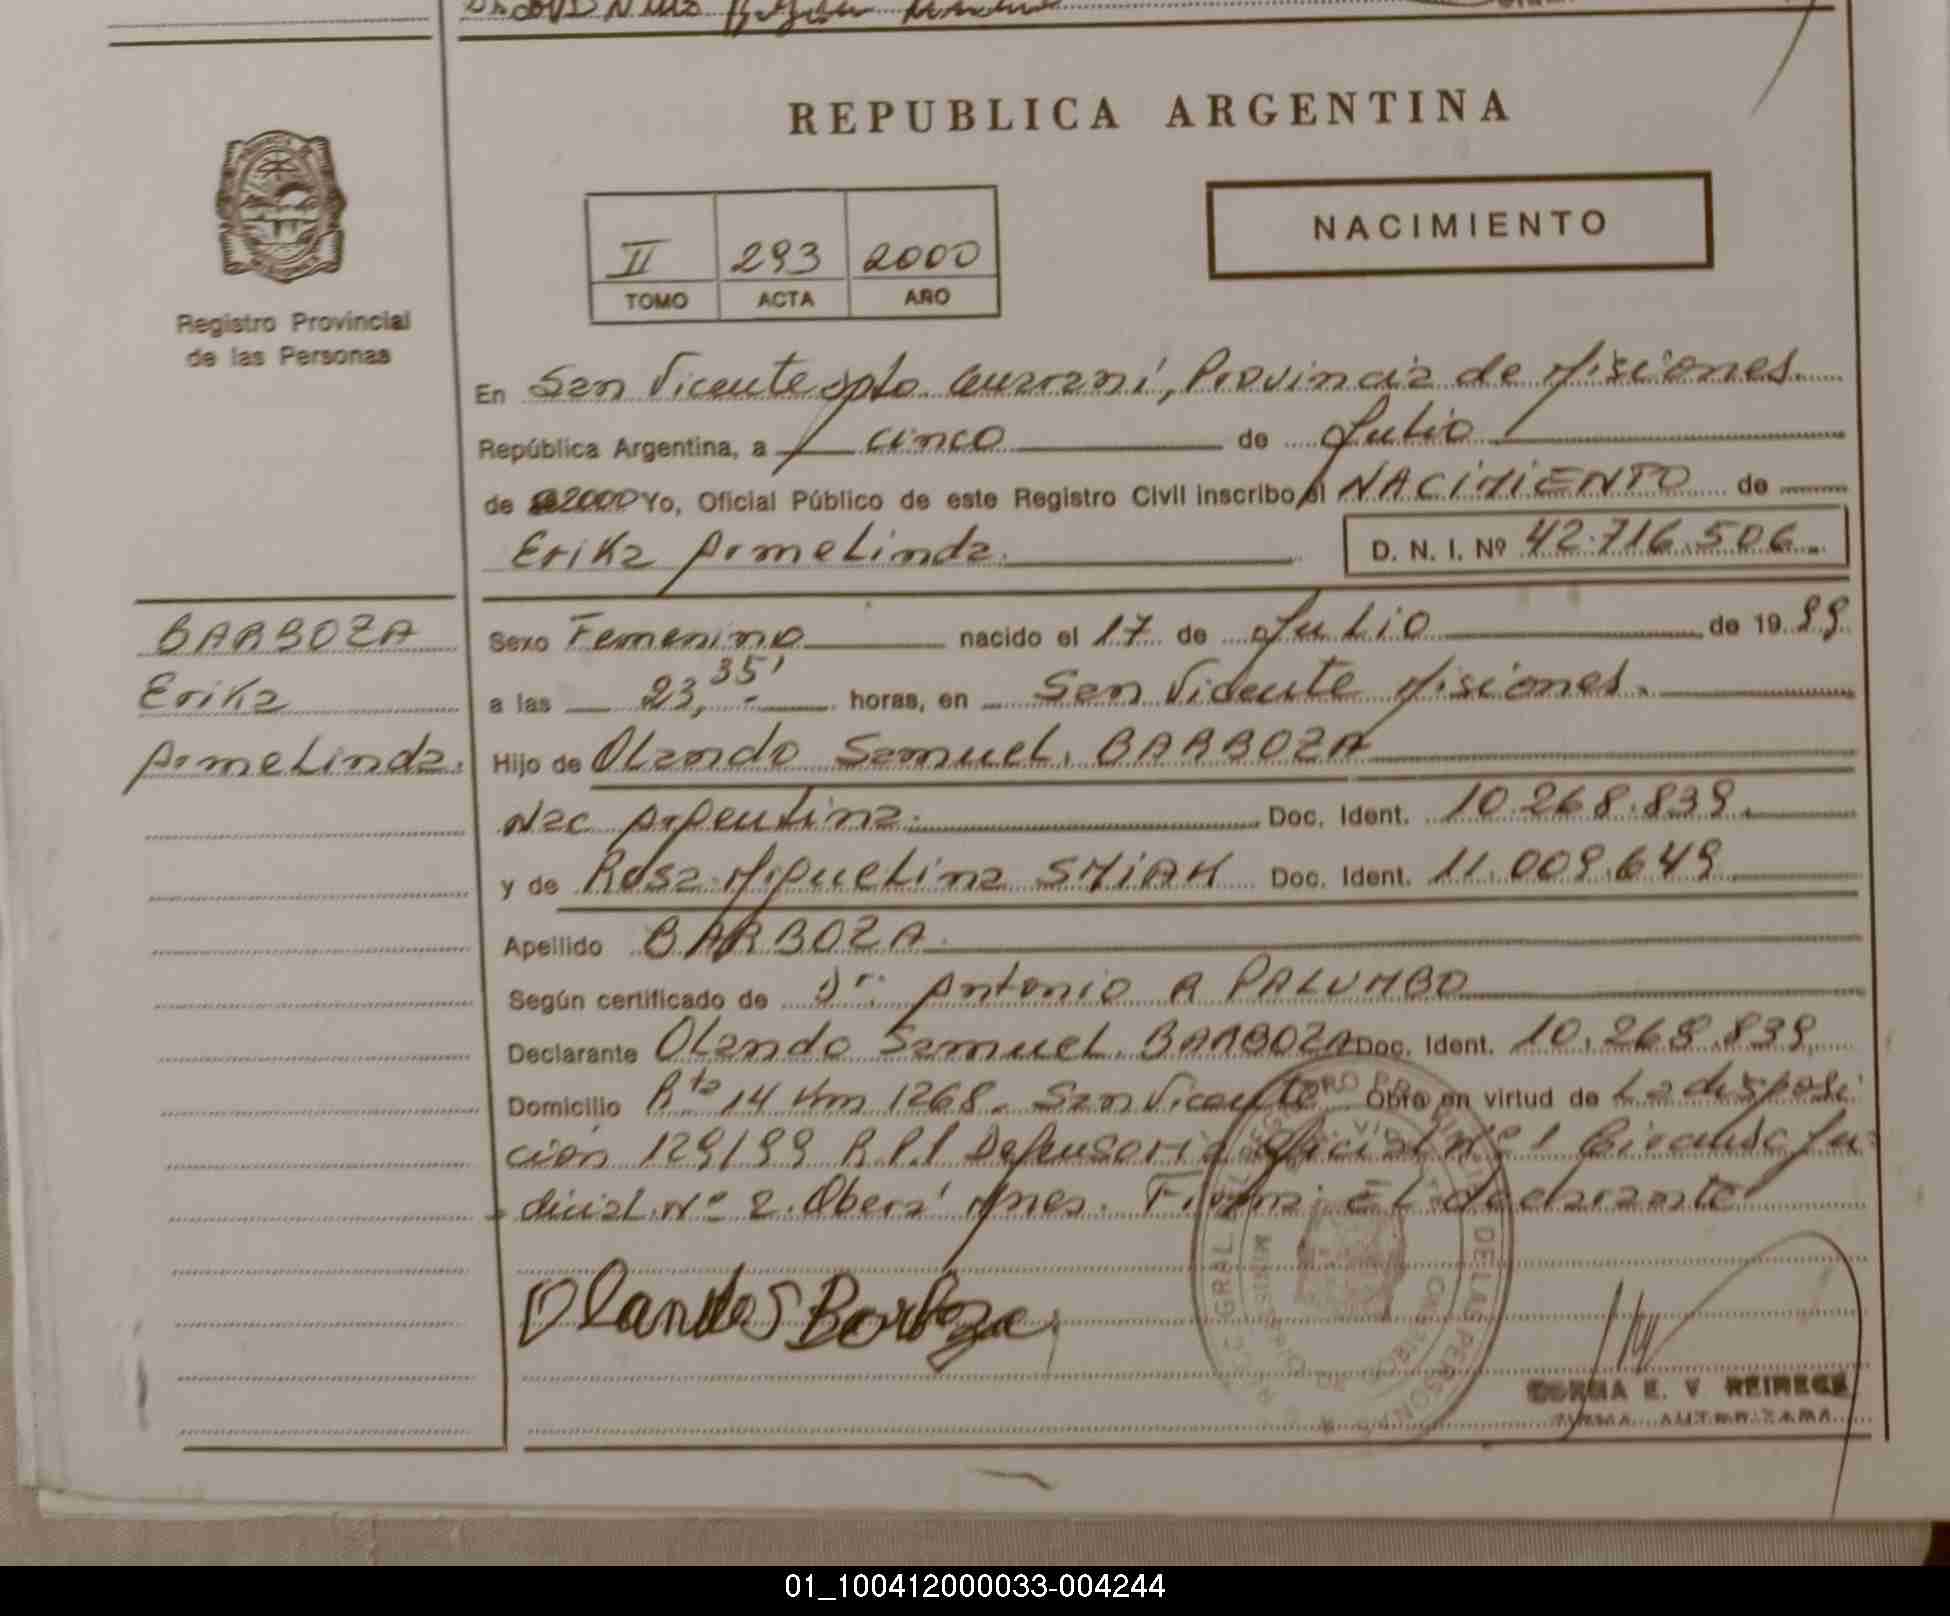 REPUBLICA ARGENTINA
NACIMIENTO
II 293 2000
TOMO ACTA AÑO
Registro Provincial
de las Personas
En San Vicente Dpto. Guaraní, Provincia de Misiones.
República Argentina, a cinco de Julio
de 2000 Yo, Oficial Público de este Registro Civil inscribo el NACIMIENTO de
Erika Armelinda. D. N. I. Nº 42.716.506
BARBOZA
Erika
Armelinda.
Sexo Femenino nacido el 17 de Julio de 1999
a las 23,35' horas, en San Vicente Misiones.
Hijo de Olando Samuel. BARBOZA
Nac Argentina. Doc. Ident. 10.268.839.
y de Rosa Miguelina SMIAK Doc. Ident. 11.009.649
Apellido BARBOZA.
Según certificado de Dr. Antonio A PALUMBO
Declarante Olando Samuel. BARBOZA Doc. Ident. 10.268.839.
Domicilio Rta 14 Km 1268. San Vicente Obro en virtud de La disposi
ción 129/99 R.P.P Defensoría Oficial Nº 1 Circunsc Ju-
dicial Nº 2. Oberá Mnes. Firma: El declarante
Olando S Barboza
NORMA E. V REINECK
FIRMA AUTORIZADA
01_100412000033-004244